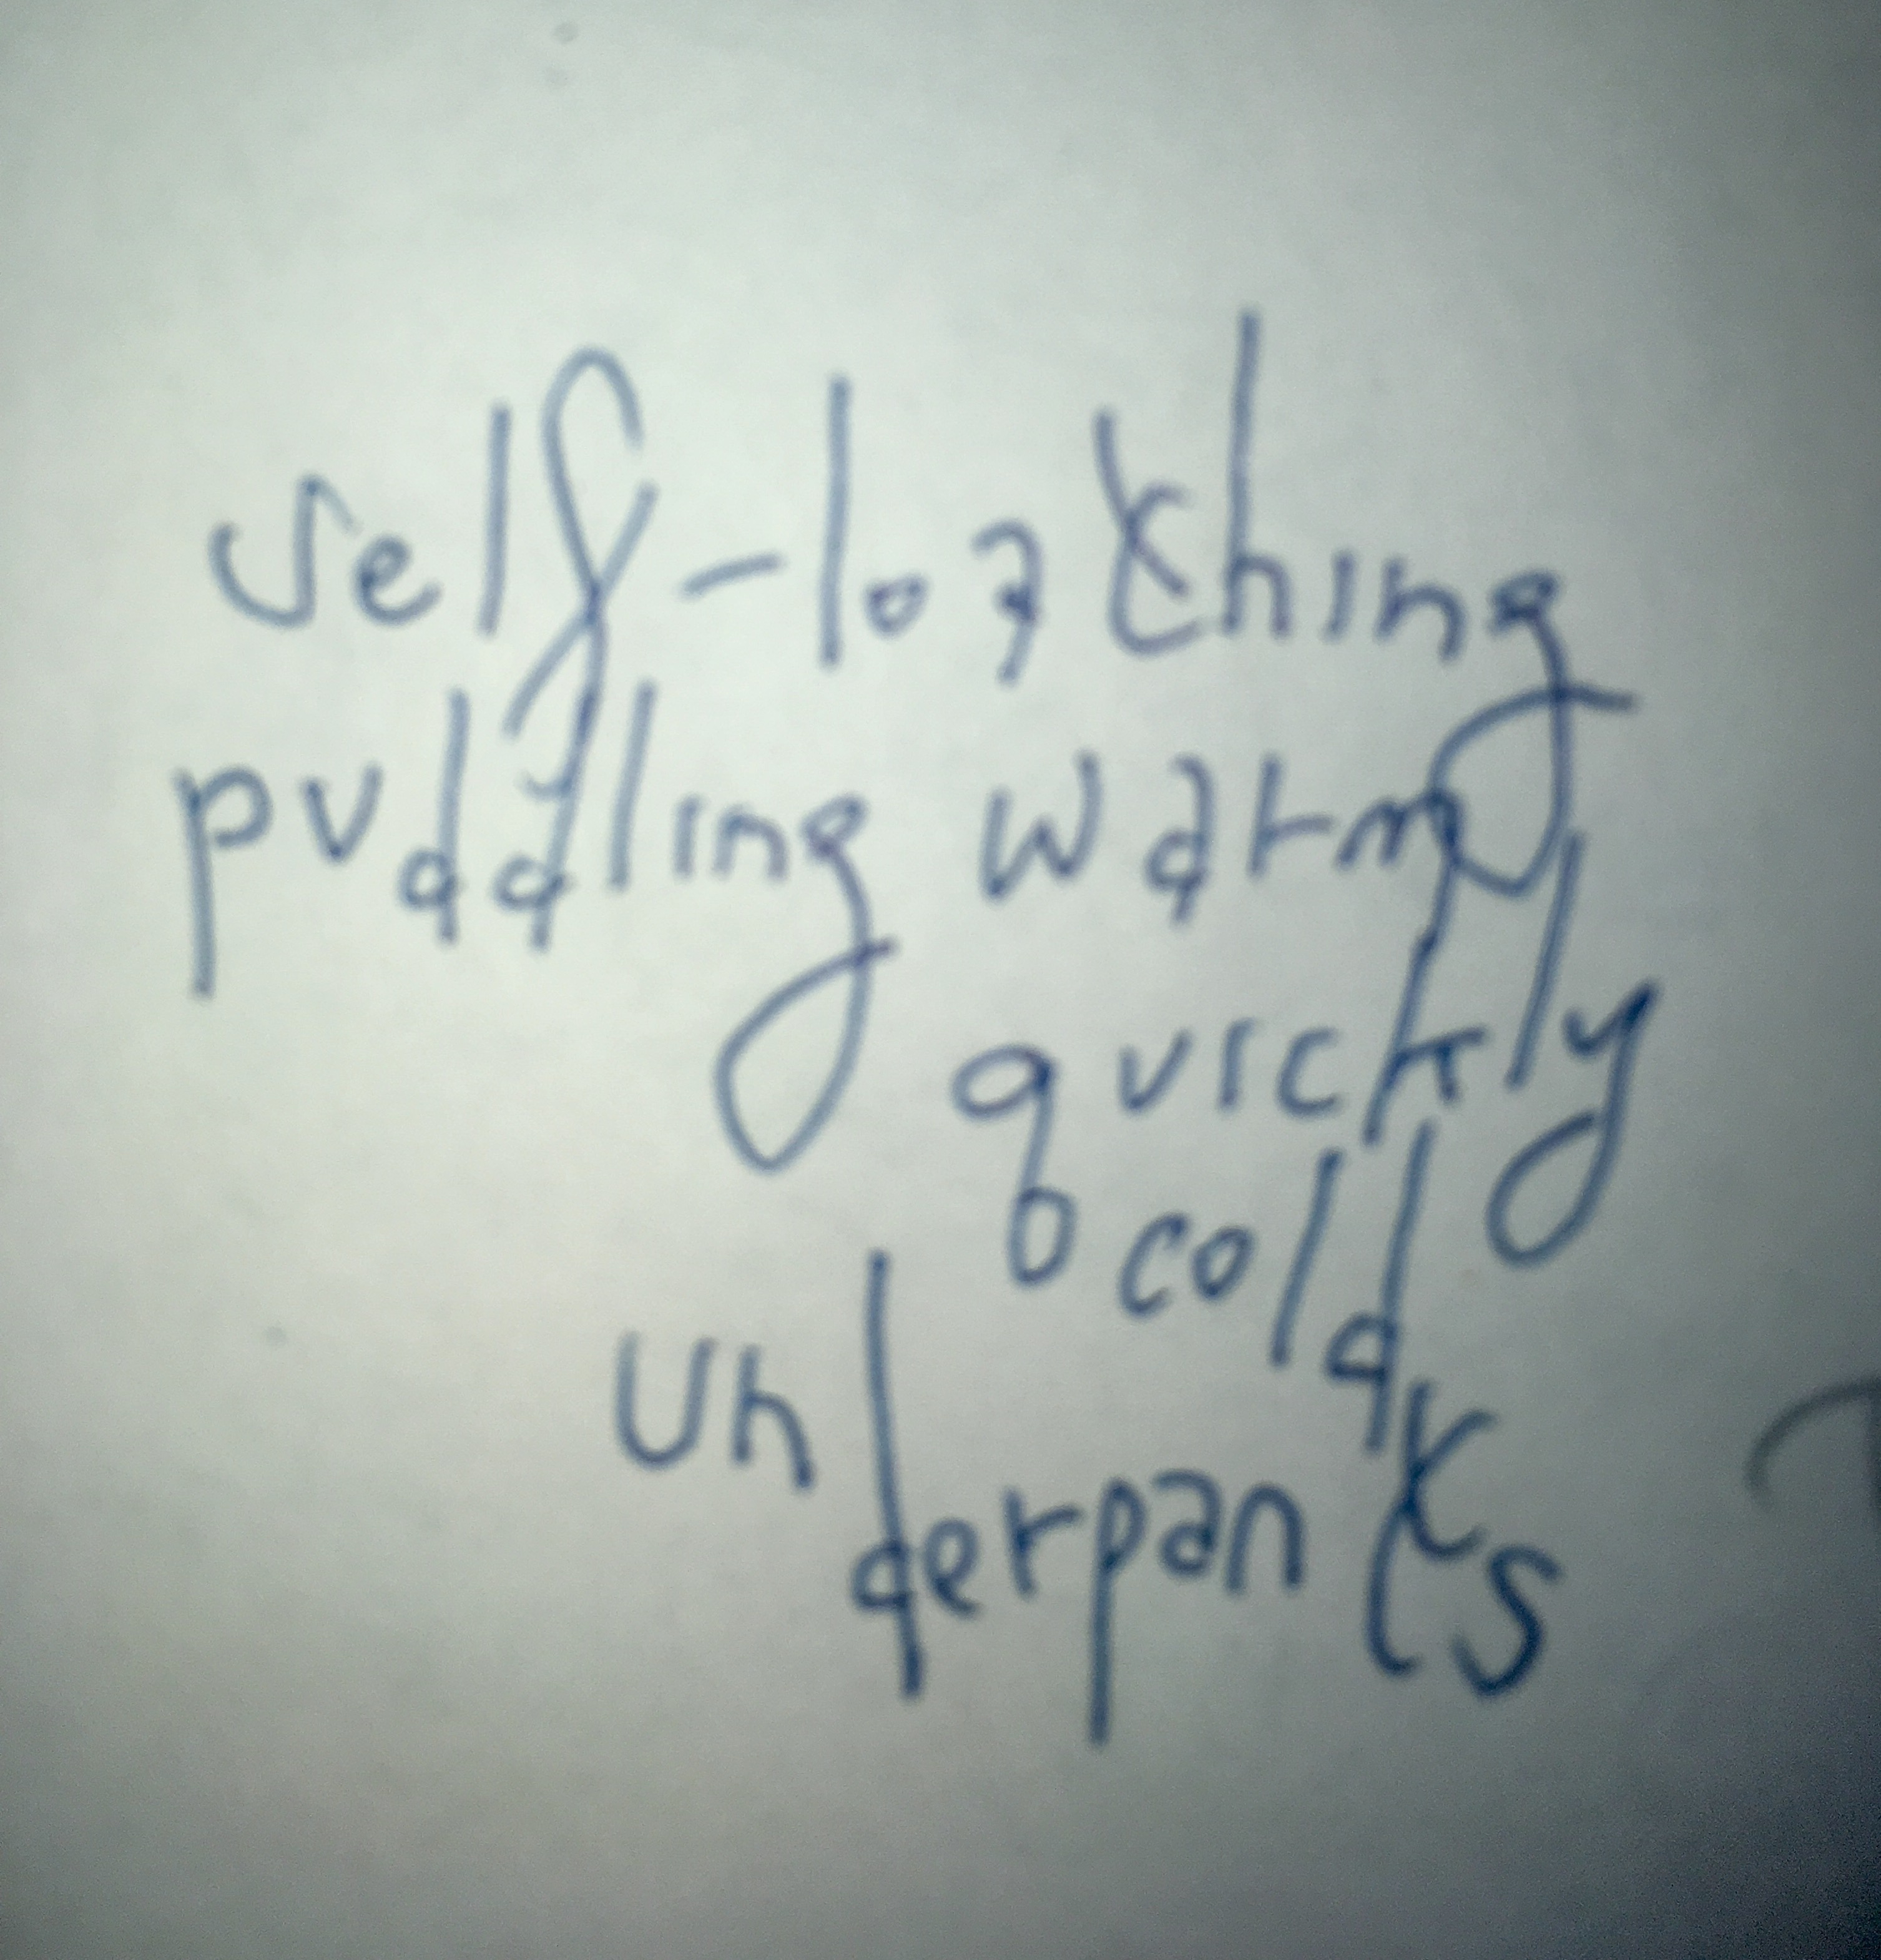 self-loathing
puddling warm
quickly
cold
underpants